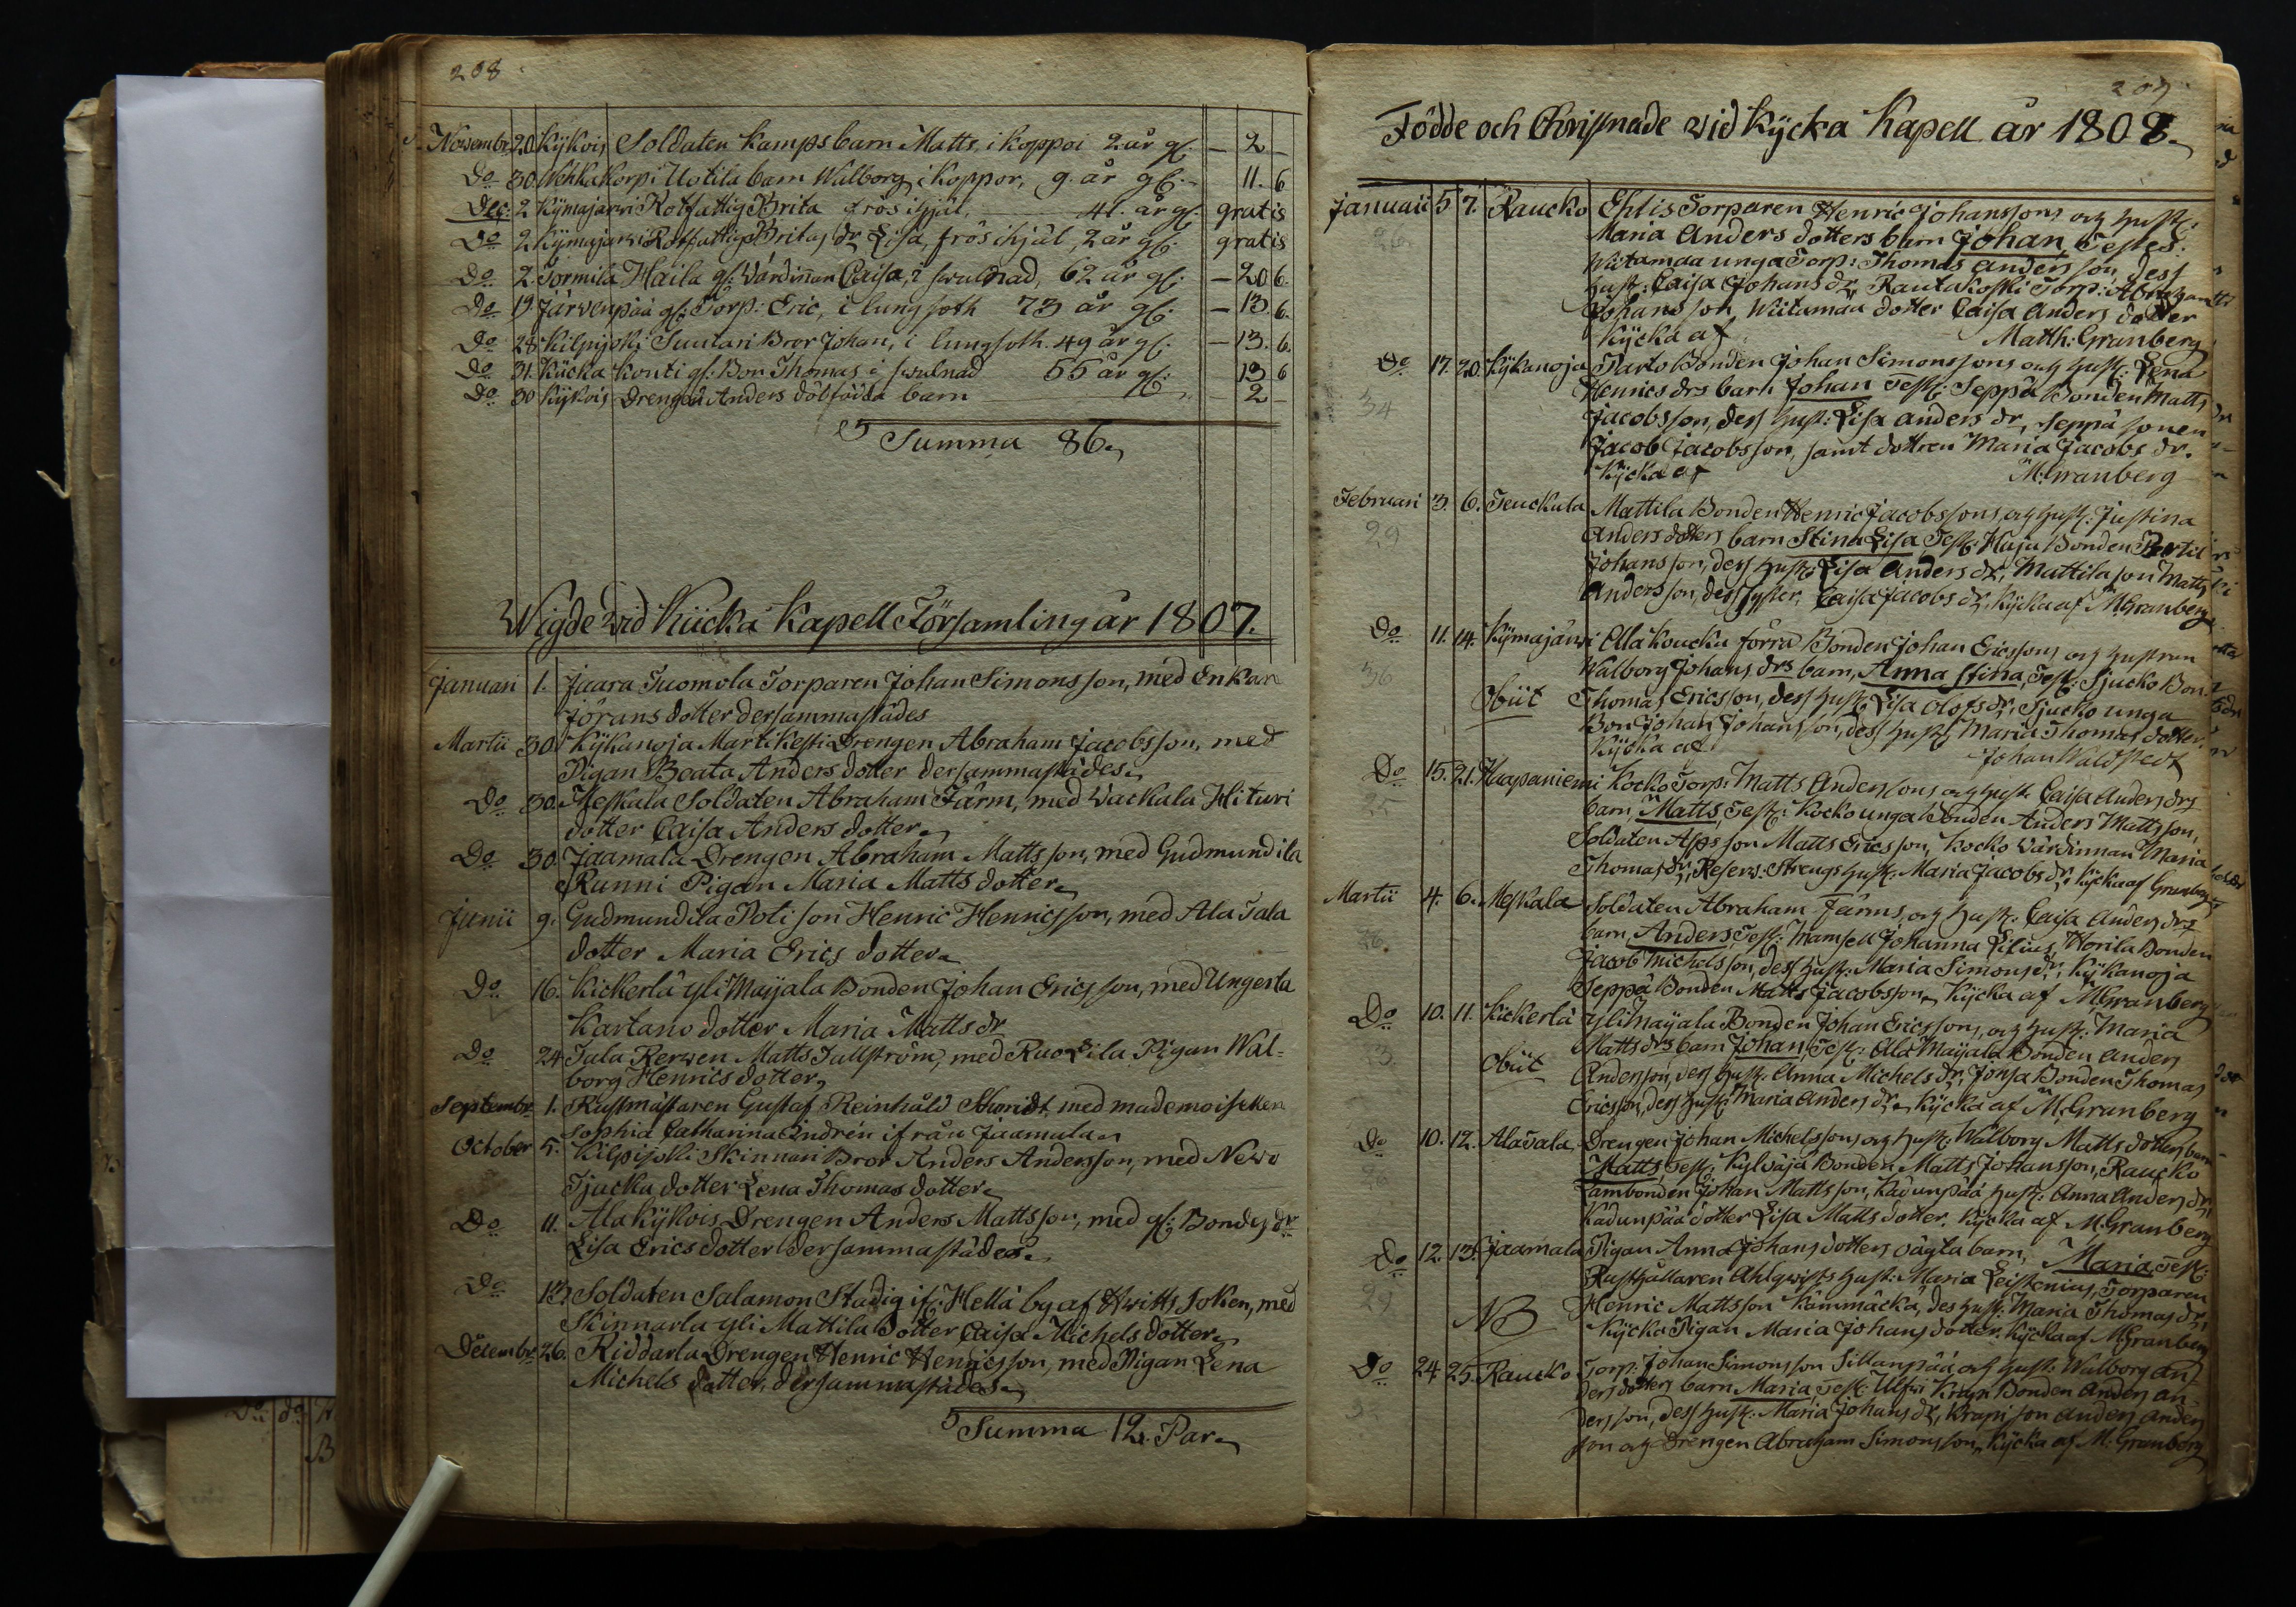 208
Novembr. 20. Kykois Soldaten Kamps barn Matts, i koppoi 2 år gl. — 2 —
Do 30. Wehkakorpi Uotila barn Walborg i koppor, 9. år gl. — 11. 6
Dec: 2 Kymajarwi Rotfattig Brita frös ihjäl, 41. år gl. gratis
Do 2 Kymajarwi Rotfattig Britas dr Lisa, frös ihjäl, 2 år gl. gratis
Do 2. Tormila Haila gl: Wärdinnan Caisa, i swulnad, 62 år gl: — 20 6.
Do 19 Järvenpää gl: Torp: Eric, i lungsoth 73 år gl: — 13. 6.
Do 28 Kilpijoki Suutari Bror Johan, i lungsoth. 49 år gl. — 13. 6.
Do 31. Kücka Konti gl: Bon Thomas i swulnad 55 år gl: 13 6
Do 30 Kykois Drengen Anders dödfödda barn — 2 —
Summa 86.
Wigde wid Kücka Kapell Församling år 1807.
Januari 1. Jaara Tuomola Torparen Johan Simonsson, med Enkan
Jörans dotter dersammastädes
Martii 30. Kykanoja Martikesti Drengen Abraham Jacobsson, med
Pigan Beata Anders dotter dersammastädes.
Do 30. Meskala Soldaten Abraham Färm, med Wackala Hituri
dotter Caisa Anders dotter.
Do 30. Jaamala Drengen Abraham Mattsson, med Gudmundila
Runni Pigan Maria Matts dotter.
Junii 9. Gudmundila Poti son Henric Henricsson, med Ala Jala
dotter Maria Erics dotter.
Do 16. Kickerlä yli Maijala Bonden Johan Ericsson, med Ungerla
Kartano dotter Maria Matts dr
Do 24 Jala Rerwen Matts Jullström, med Raoxila Pigan Wal-
borg Henrics dotter,
Septembr. 1. Rustmästaren Gustaf Reinhåld Schmidt, med mademoisellen
Sophia Catharina Andrén ifrån Jaamala.
October 5. Kilpijoki Skinnari Bror Anders Andersson, med Newo
Tjucka dotter Lena Thomas dotter.
Do 11. Ala Kykois Drengen Anders Mattsson, med gl: Bondes dr
Lisa Erics dotter dersammastädes.
Do 13. Soldaten Salamon Stadig if: Hellä by af Hwitts Soken, med
Skinnarla yli Mattila dotter Caisa Michels dotter.
Decembr. 26. Riddarla Drengen Henric Henricsson, med Pigan Lena
Michels dotter, dersammastädes.
Summa 12. Par.
209
Födde och Christnade wid Kycka Kapell år 1808.
Januarii 5 7. Raucko Ehlis Torparen Henric Johanssons och hust:
Maria Anders dotters barn Johan Testes:
26. Wiitamaa unga Torp: Thomas Andersson, dess
hust: Caisa Johans dr, Rautakoski Torp: Abraham
Johansson, Wiitamaa dotter Caisa Anders dotter
Kycka af Matth: Granberg
Do 17. 20. Kykanoja Parto Bonden Johan Simonssons och hust: Lena
Henrics drs barn Johan Test: Seppä Bonden Matts
34 Jacobsson, dess hust: Lisa Anders dr, Seppä sonen
Jacob Jacobsson, samt dottren Maria Jacobs dr.
Kycka af M: Granberg
Februari 3. 6. Teuckula Mattila Bonden Henric Jacobssons, och hust: Justina
29 Anders dotters barn Stina Lisa Test: Haju Bonden Bertil
Johansson, dess hust: Lisa Anders dr, Mattila son Matts
Andersson, dess syster, Caisa Jacobs dr, Kycka af M: Granberg
Do 11. 14. Kymajärwi Alla Koucku förra Bonden Johan Ericssons och hustrun
36 Walborg Johans drs barn, Anna Stina, Test: Sjucko Bon:
Obiit Thomas Ericsson, dess hust: Lisa Olofs dr, Sjucko unga
Bon Johan Johansson, dess hust: Maria Thomas dotter.
Kycka af Johan Waldstedt
Do 15. 21. Haapaniemi Kocko Torp: Matts Anderssons och hust: Caisa Anders drs
25 barn, Matts, Test: Kocko unga Bonden Anders Mattsson,
Soldaten Asps son Matts Ericsson, Kocko Wärdinnan Maria
Thomas dr, Reserv: Strengs hust: Maria Jacobs dr. Kycka af Granberg
Martii 4. 6. Meskala Soldaten Abraham Färms, och hust: Caisa Anders drs
26. barn, Anders, Test: Mamsell Johanna Lilius, Horila Bonden
Jacob Michelsson, dess hust: Maria Simons dr, Kykanoja
Seppä Bonden Matts Jacobsson. Kycka af M: Granberg
Do 10. 11. Kickerlä yli Maijala Bonden Johan Ericssons, och hust: Maria
3. Matts drs barn Johan, Test: Ala Maijala Bonden Anders
Obiit Andersson, dess hust: Anna Michels dr, Jonsa Bonden Thomas
Ericsson, dess hust: Maria Anders dr. Kycka af M: Granberg
Do 10. 12. Alasala Drengen Johan Michelssons och hust: Walborg Matts dotters barn
26 Matts, Test: Kylväjä Bonden Matts Johansson, Raucko
Lambonden Johan Mattsson, Kadunpää hust: Anna Anders dr,
Kadunpää dotter Lisa Matts dotter. Kycka af M: Granberg
Do 12. 13. Jaamala Pigan Anna Johans dotters oägta barn, Maria, Test:
29 Rusthållaren Ahlqwists hust: Maria Leistenius, Torparen
NB Henric Mattsson Kämmäckä, des hust: Maria Thomas dr,
Kycka Pigan Maria Johans dotter. Kycka af M: Granberg
Do 24 25. Raucko Torp: Johan Simonsson Sillanpää och hust: Walborg An
ders dotters barn, Maria, Test: Ulfwi Krapi Bonden Anders An
dersson, dess hust: Maria Johans dr, Krapi son Anders Anders
son och Drengen Abraham Simonsson, Kycka af M: Granberg